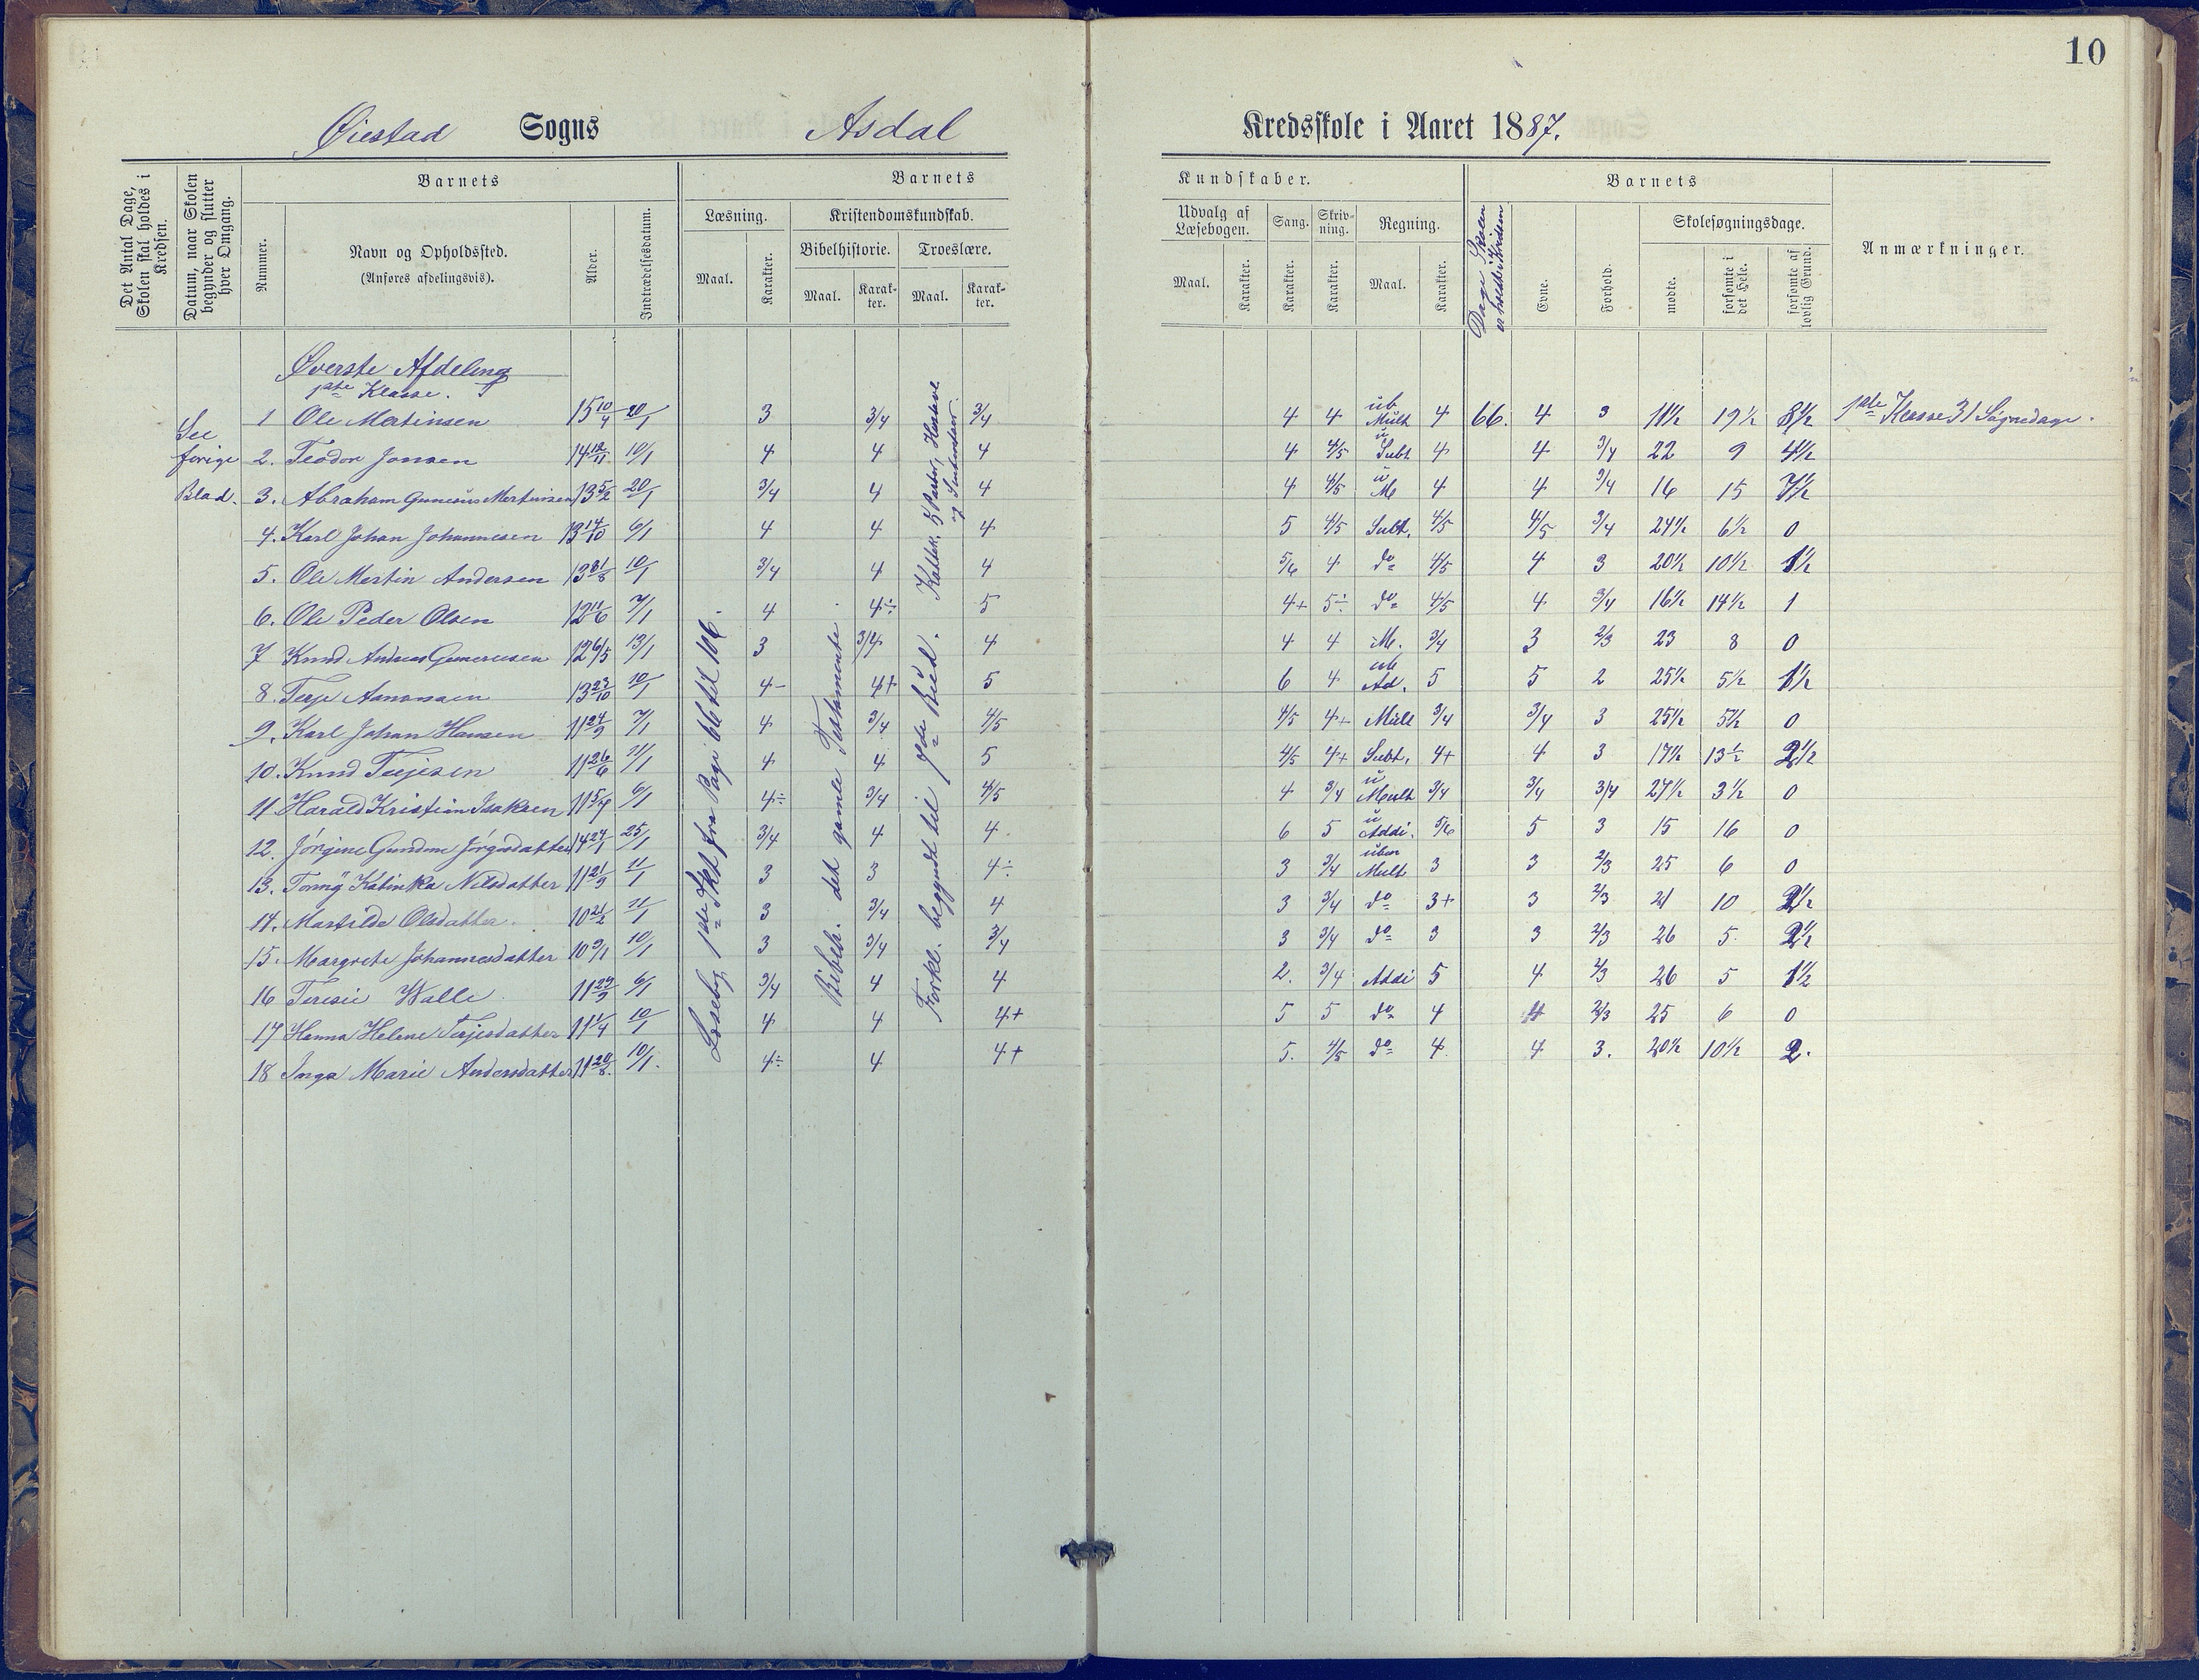 10
Øiestad Sogns Asdal Kredsskole i Aaret 1887.
Det Antal Dage, Skolen skal holdes i Kredsen.
Datum, naar Skolen begynder og slutter hver Omgang.
Barnets
Nummer.
Navn og Opholdssted.
(Anføres afdelingsvis).
Alder.
Indtrædelsesdatum.
Barnets Kundskaber.
Læsning.
Maal.
Karakter.
Kristendomskundskab.
Bibelhistorie.
Maal.
Karakter.
Troeslære.
Maal.
Karakter.
Udvalg af Læsebogen.
Maal.
Karakter.
Sang.
Karakter.
Skrivning.
Karakter.
Regning.
Maal.
Karakter.
Dage Skolen er holdt i Kredsen
Barnets
Evne.
Forhold.
Skolesøgningsdage.
mødte.
forsømte i det Hele.
forsømte af lovlig Grund.
Anmærkninger.
Øverste Afdeling
1ste Klasse.
See forige Blad.
Læseb. 1ste Skt fra Page 66 til 106.
Bibelh. det gamle Testamente.
Forkl. begyndt til 7de Bud.
Katek. 5 Parter, Hustavle
1 Ole Martinsen 15 10/4 20/1 3 3/4 3/4 4 4 ub Mult 4 66. 4 3 11½ 19½ 8½ 1ste Klasse 31 Søgnedage.
2. Teodor Jonsen 14 12/11 10/1 4 4 4 4 4/5 u Subt 4 4 3/4 22 9 4½
3. Abraham Gunerius Martinsen 13 5/2 20/1 3/4 4 4 4 4/5 u M 4 4 3/4 16 15 7½
4. Karl Johan Johannesen 13 14/10 6/1 4 4 4 5 4/5 Subt. 4/5 4/5 3/4 24½ 6½ 0
5. Ole Martin Andersen 13 31/8 10/1 3/4 4 4 5/6 4 do 4/5 4 3 20½ 10½ 1½
6. Ole Peder Olsen 12 11/6 7/1 4 4÷ 5 4+ 5÷ do 4/5 4 3/4 16½ 14½ 1
7 Knud Andreas Gunerusen 12 6/5 13/1 3 3/4 4 4 4 M. 3/4 3 2/3 23 8 0
8. Terje Aanonsen 13 23/10 10/1 4- 4+ 5 6 4 Ad. 5 5 2 25½ 5½ 1½
9. Karl Johan Hansen 11 24/9 7/1 4 3/4 4/5 4/5 4+ Mult 3/4 3/4 3 25½ 5½ 0
10. Knud Terjesen 11 26/6 11/1 4 4 5 4/5 4+ Subt. 4+ 4 3 17½ 13½ 2½
11 Harald Kristian Isaksen 11 5/7 6/1 4÷ 3/4 4/5 4 3/4 u Mult 3/4 3/4 3/4 27½ 3½ 0
12. Jørgine Gundine Jørgensdatter 14 24/1 25/1 3/4 4 4 6 5 u Addi. 5/6 5 3 15 16 0
13. Tomy Katinka Nilsdatter 11 21/9 11/1 3 3 4÷ 3 3/4 uben Mult 3 3 2/3 25 6 0
14. Matilde Olsdatter. 10 21/2 11/1 3 3/4 4 3 3/4 do 3+ 3 2/3 21 10 2½
15. Margrete Johannesdatter 10 9/1 10/1 3 3/4 3/4 3 3/4 do 3 3 2/3 26 5 2½
16 Teresie Walle 11 29/9 6/1 3/4 4 4 2. 3/4 Addi 5 4 2/3 26 5 1½
17 Hanna Helene Terjesdatter 11 1/4 10/1 4 4 4+ 5 5 do 4 4 2/3 25 6 0
18 Inga Marie Andersdatter 11 20/8 10/1. 4÷ 4 4+ 5. 4/5 do 4 4 3. 20½ 10½ 2.